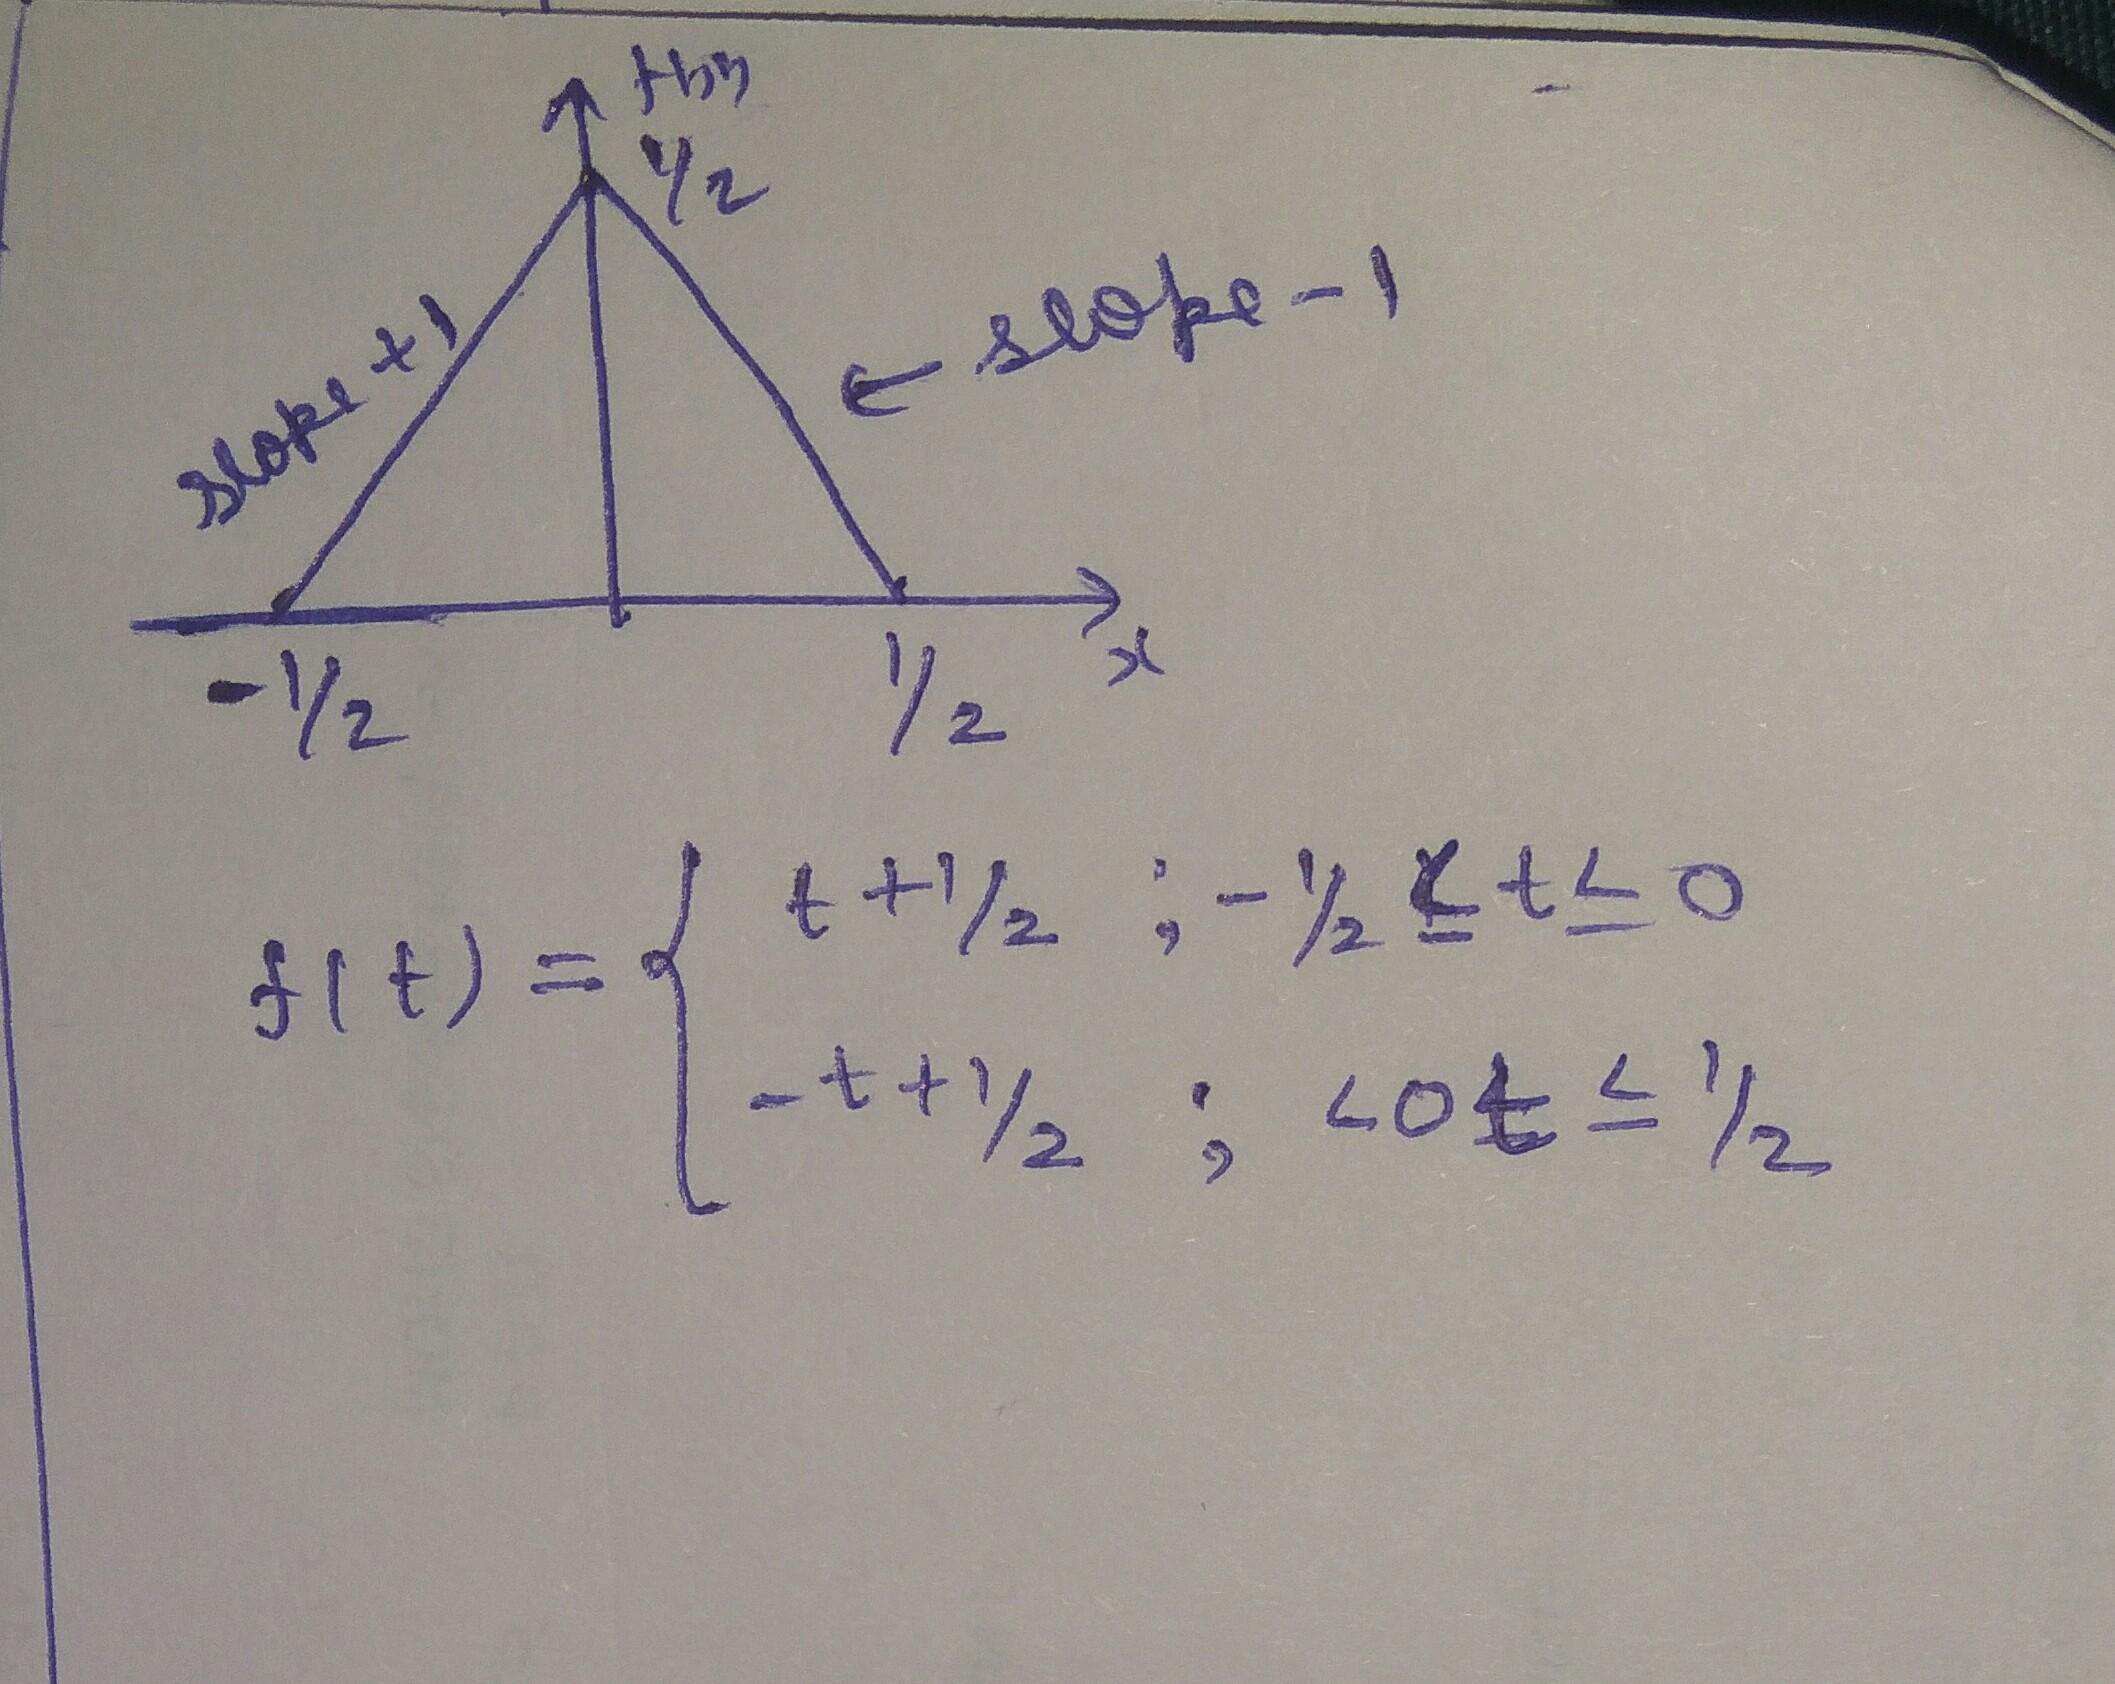 1/2
slope +1
← slope -1
-1/2
1/2
x
f(t) = { t + 1/2 ; -1/2 ≤ t ≤ 0
-t + 1/2 ; <0t ≤ 1/2